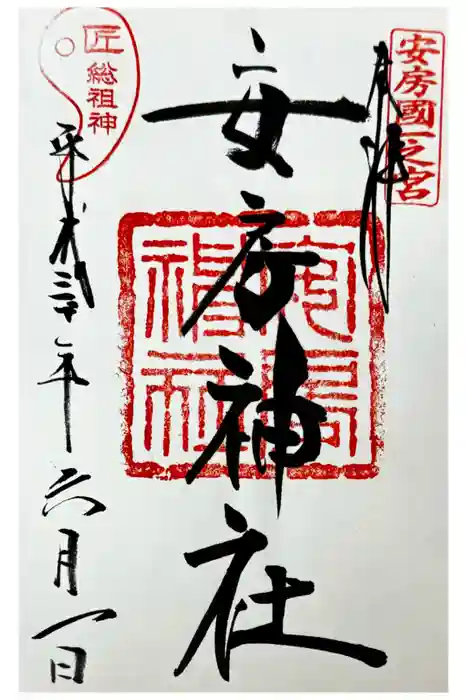 安房國一之宮
奉拝
安房神社
匠
総祖神
平成三十年六月一日